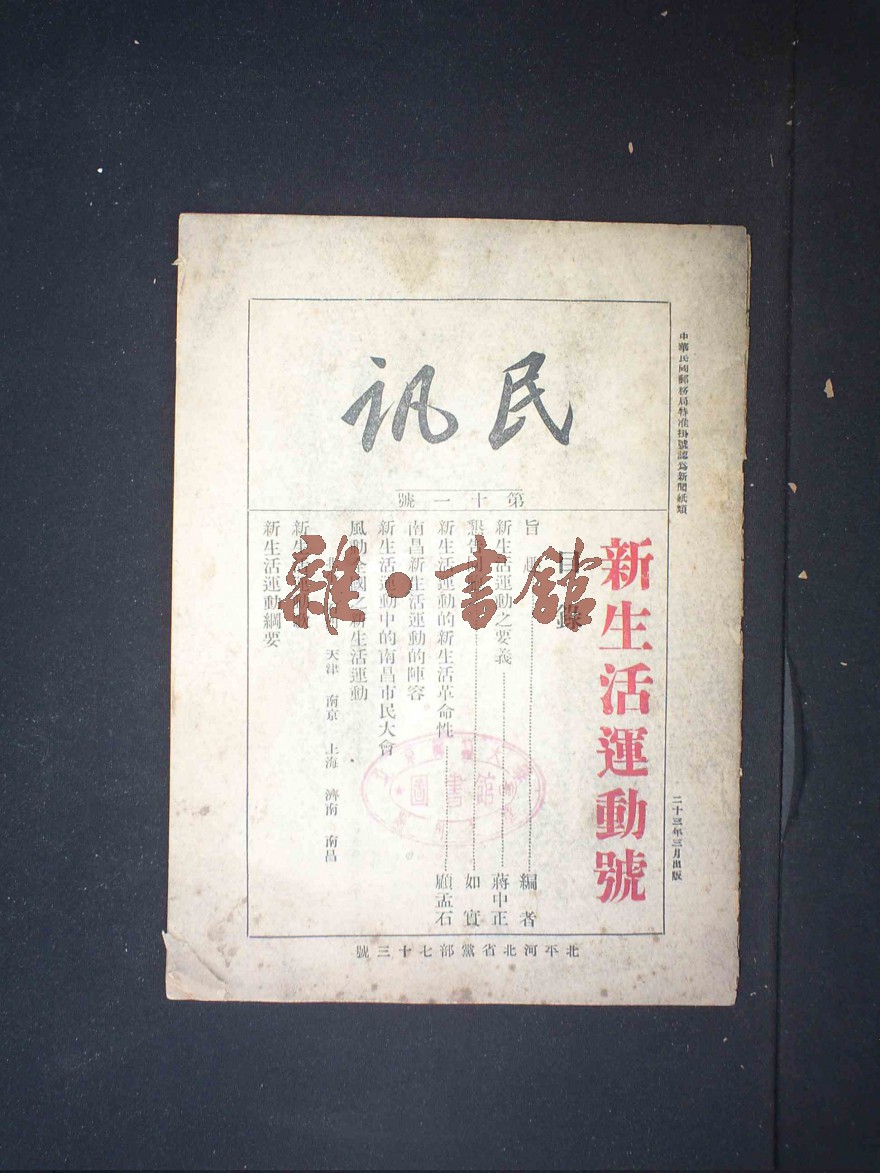 中華民國郵務局特准掛號認爲新聞紙類
二十三年三月出版
民訊
第十一號
新生活運動號
目錄
旨趣 編者
新生活運動之要義 蔣中正
如實
新生活運動的新生活革命性 顧孟石
南昌新生活運動的陣容
新生活運動中的南昌市民大會
風動全國之新生活運動
天津 南京 上海 濟南 南昌
新生活運動歌
新生活運動綱要
北平河北省黨部七十三號
雜·書館
圖書館